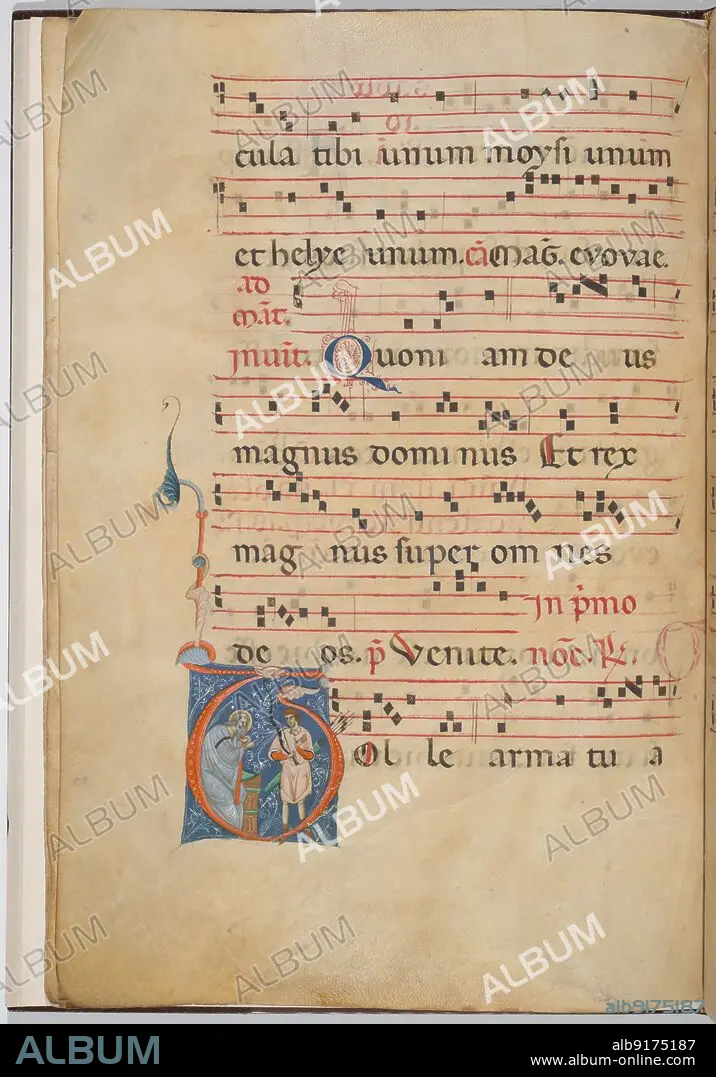 cula tibi unum moysi unum
et helye unum. cā Mag̅. evovae.
ad
māt.
Inuit̅. Quoni am de us
magnus domi nus Et rex
mag nus super om nes
In p̄mo
de os. p̄ Venite. noc̄. R.
Ol le arma tu a
ALBUM
alb9175187
ALBUM
alb9175187
www.album-online.com